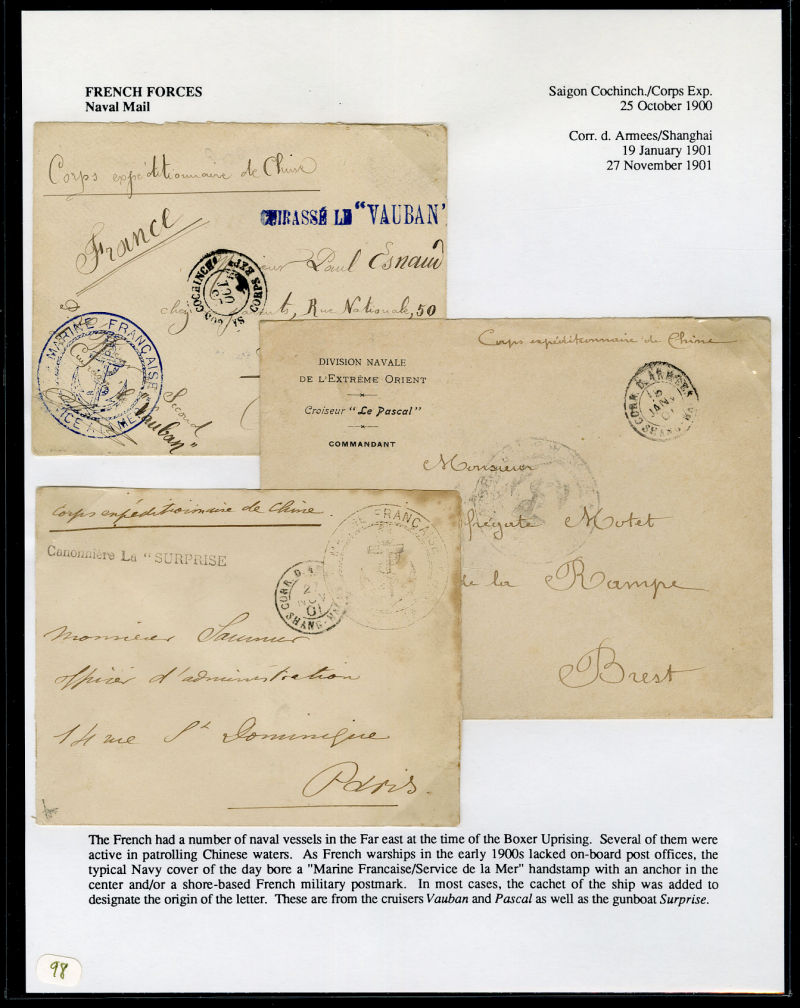 FRENCH FORCES
Naval Mail
Saigon Cochinch./Corps Exp.
25 October 1900
Corr. d. Armees/Shanghai
19 January 1901
27 November 1901
Corps expéditionnaire de Chine
CUIRASSÉ LE "VAUBAN"
France
Paul Esnaud
Rue Nationale, 50
CORPS EXP
OCT
MARINE FRANÇAISE
Second
"Vauban"
Corps expéditionnaire de Chine
DIVISION NAVALE
DE L'EXTRÊME ORIENT
Croiseur "Le Pascal"
COMMANDANT
CORR. D. ARMÉES
JANV
SHANG-HAI
Monsieur
frégate Motet
de la Rampe
Brest
Corps expéditionnaire de Chine.
Canonnière La "SURPRISE
MARINE FRANÇAISE
CORR. D.
27
NOV
01
SHANG-HAI
Monsieur
officier d'administration
14 rue St Dominique
Paris.
The French had a number of naval vessels in the Far east at the time of the Boxer Uprising. Several of them were
active in patrolling Chinese waters. As French warships in the early 1900s lacked on-board post offices, the
typical Navy cover of the day bore a "Marine Francaise/Service de la Mer" handstamp with an anchor in the
center and/or a shore-based French military postmark. In most cases, the cachet of the ship was added to
designate the origin of the letter. These are from the cruisers Vauban and Pascal as well as the gunboat Surprise.
98